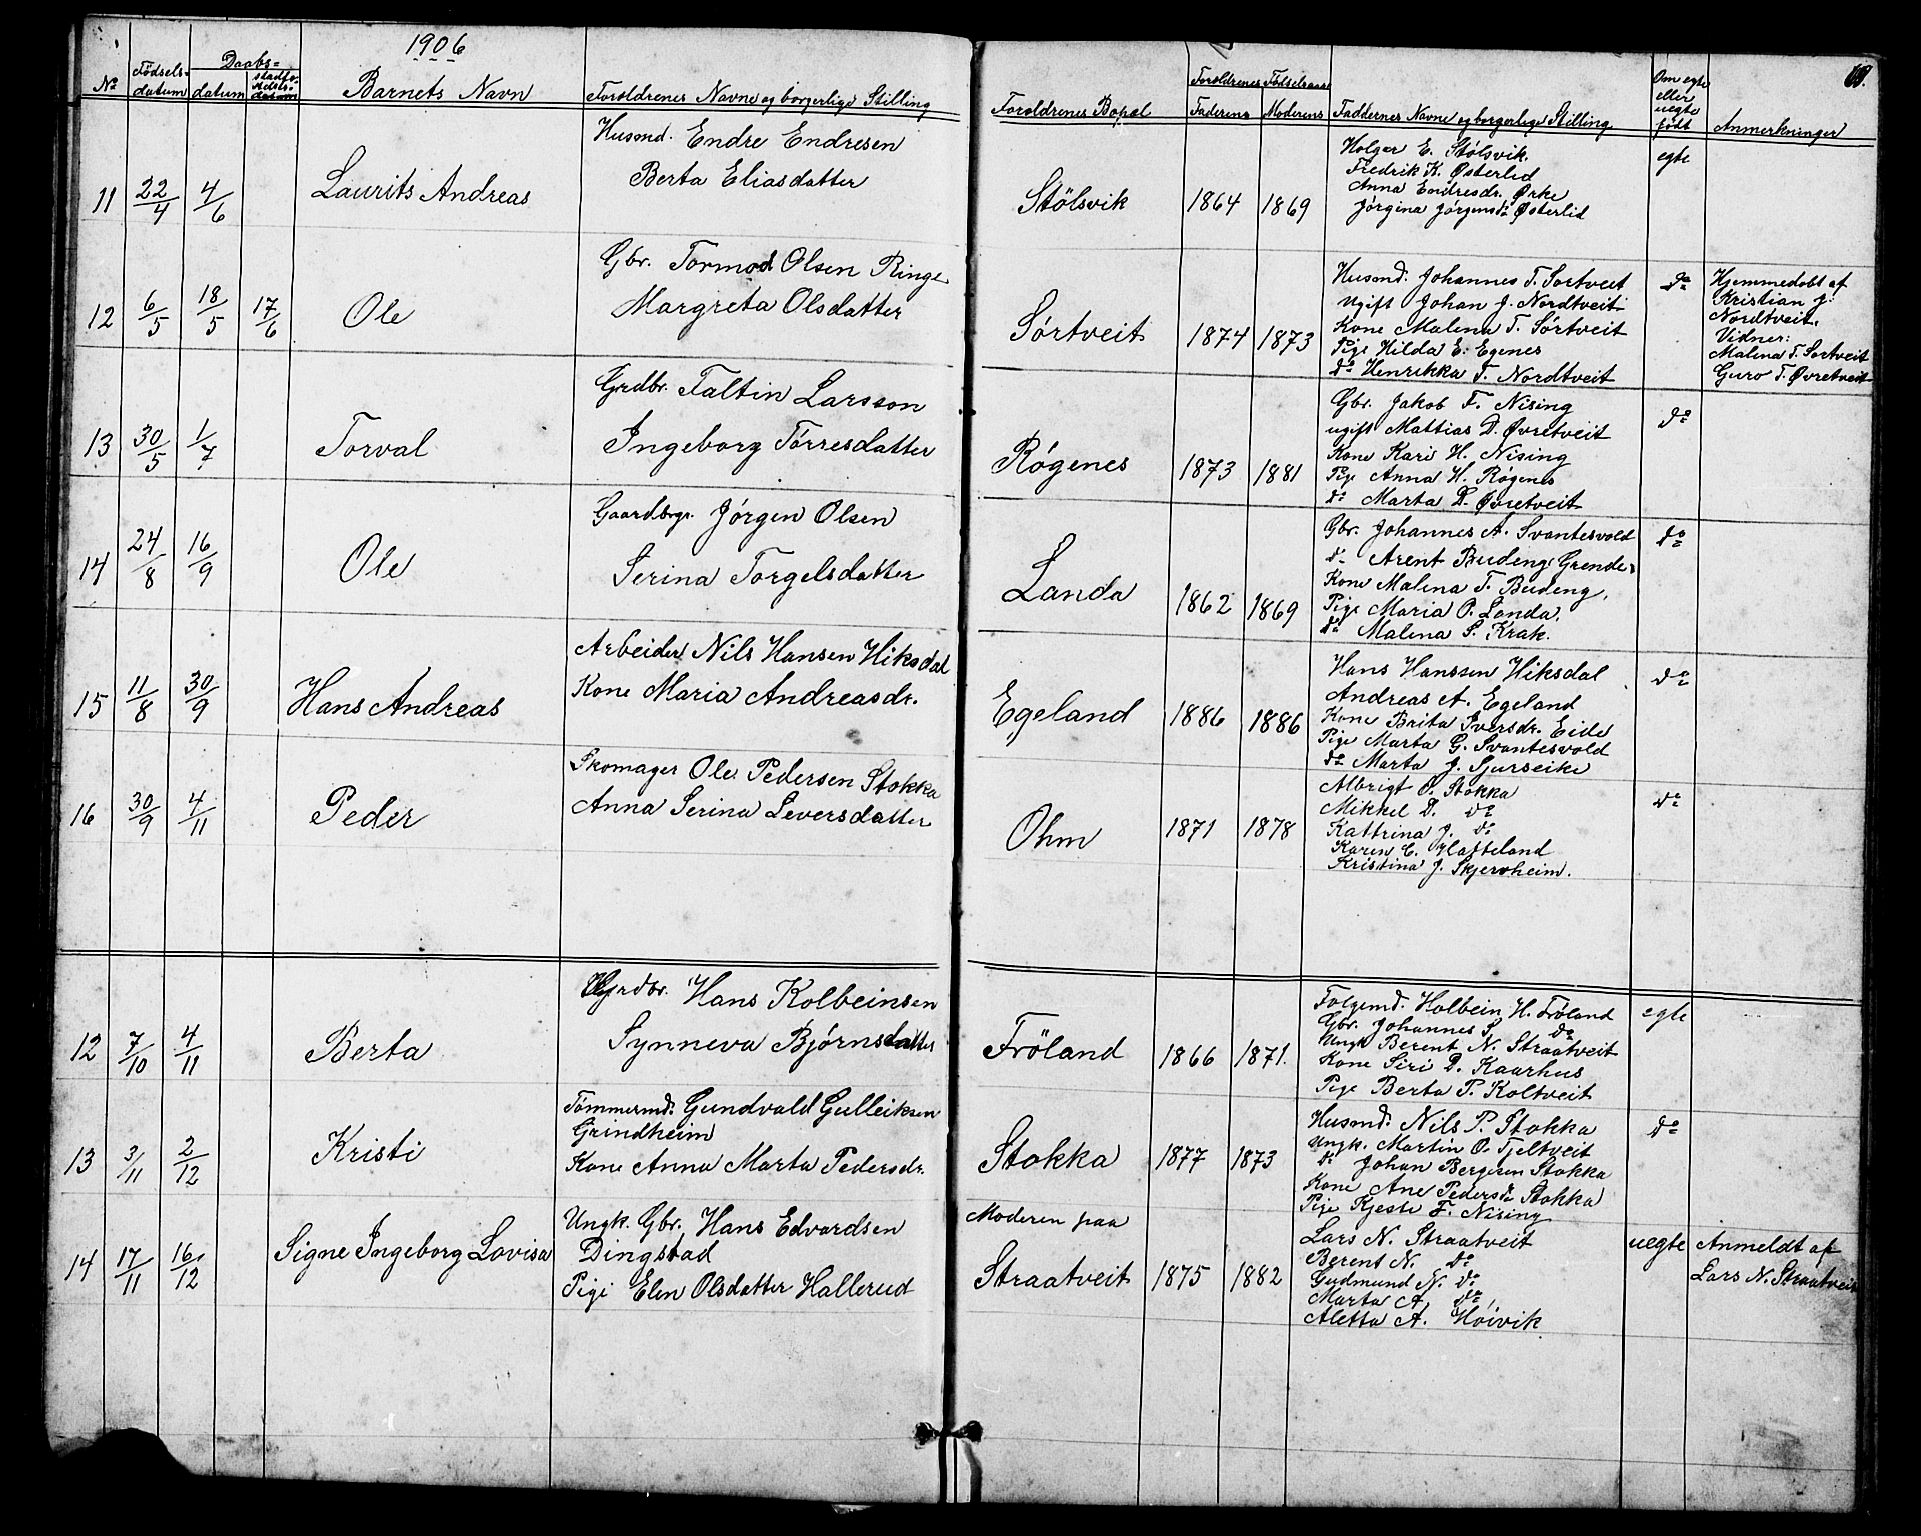 1906
No
Fødsels-
datum
Daabs-
datum
Barnets Navn
Foroldrenes Navne og borgerlige Stilling
Foroldrenes Bopæl
Foroldrenes Fødselsaar
Faderens
Moderens
Faddernes Navne og borgerlige Stilling
Om egte
eller
uegte
født
Anmerkninger
11 22/4 4/6
Laurits Andreas
Husmd. Endre Endresen
Berta Eliasdatter
Stölsvik
1864 1869
Holger E. Stölsvik.
Fredrik K. Østerlid
Anna Endresdr. Ørke
Jørgina Jørgensdr Østerlid
egte
12 6/5 18/5 17/6
Ole
Gbr. Tormod Olsen Ringe
Margreta Olsdatter
Sörtveit
1874 1873
Husmd. Johannes T. Sortveit
Ugift Johan J. Nordtveit
Kone Malena T. Sörtveit
Pige Hilda E. Egenes
do Henrikka T. Nordtveit
do
Hjemmedobt af
Kristian J.
Nordtveit.
Vidner:
Malena T. Sortveit
Guro T. Øvretveit
13 30/5 1/7
Torval
Grdbr. Faltin Larsson
Ingeborg Törresdatter
Røgenes
1873 1881
Gbr. Jakob F. Nising
ugift Mattias D. Øvretveit
Kone Kari H. Nising
Pige Anna H. Røgenes
do Marta D. Øvretveit
do
14 24/8 16/9
Ole
Gaardbrgr. Jörgen Olsen
Serina Torgelsdatter
Landa
1862 1869
Gbr. Johannes A. Svantesvold
do Arent Budeng Grende
Kone Malena T. Budeng.
Pige Maria O. Landa.
do Malena S. Krak.
do
15 11/8 30/9
Hans Andreas
Arbeider Nils Hansen Hiksdal
Kone Maria Andreasdr.
Egeland
1886 1886
Hans Hanssen Hiksdal
Andreas A. Egeland
Kone Brita Iversdr. Eide
Pige Marta G. Svantesvold
do Marta J. Sjurseike
do
16 30/9 4/11
Peder
Skomager Ole Pedersen Stokka
Anna Serina Seversdatter
Ohm
1871 1878
Albrigt O. Stokka
Mikkel D. do
Kattrina J. do
Karen C. Hafteland
Kristina J. Skjersheim.
do
12 7/10 4/11
Berta
Grdbr. Hans Kolbeinsen
Synneva Bjørnsdatter
Fröland
1866 1871.
Folgemd. Holbein H. Fröland
Gbr. Johannes S. do
Ungk Berent N. Straatveit
Kone Siri D. Kaarhus
Pige Berta P. Koltveit
egte
13 3/11 2/12
Kristi
Tömmermd. Gundvald Gulleiksen
Grindheim
Kone Anna Marta Pedersdr.
Stokka
1877 1873
Husmd. Nils P. Stokka
Ungk. Martin O. Tjeltveit
do Johan Bergesen Stokka
Kone Ane Pedersdr Stokka
Pige Kjeste F. Nising
do
14 17/11 16/12
Signe Ingeborg Lovisa
Ungk. Gbr. Hans Edvardsen
Dingstad
Pige Elen Olsdatter Hallerud
Moderen paa
Straatveit
1875 1882
Lars N. Straatveit
Berent N. do
Gudmund N. do
Marta A. do
Aletta A. Höivik
uegte
Anmeldt af
Lars N. Straatveit